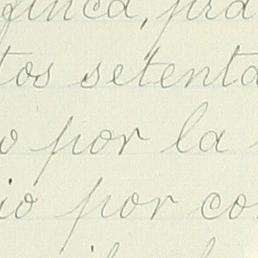 finca, pra
tos setenta
o por la
io por co